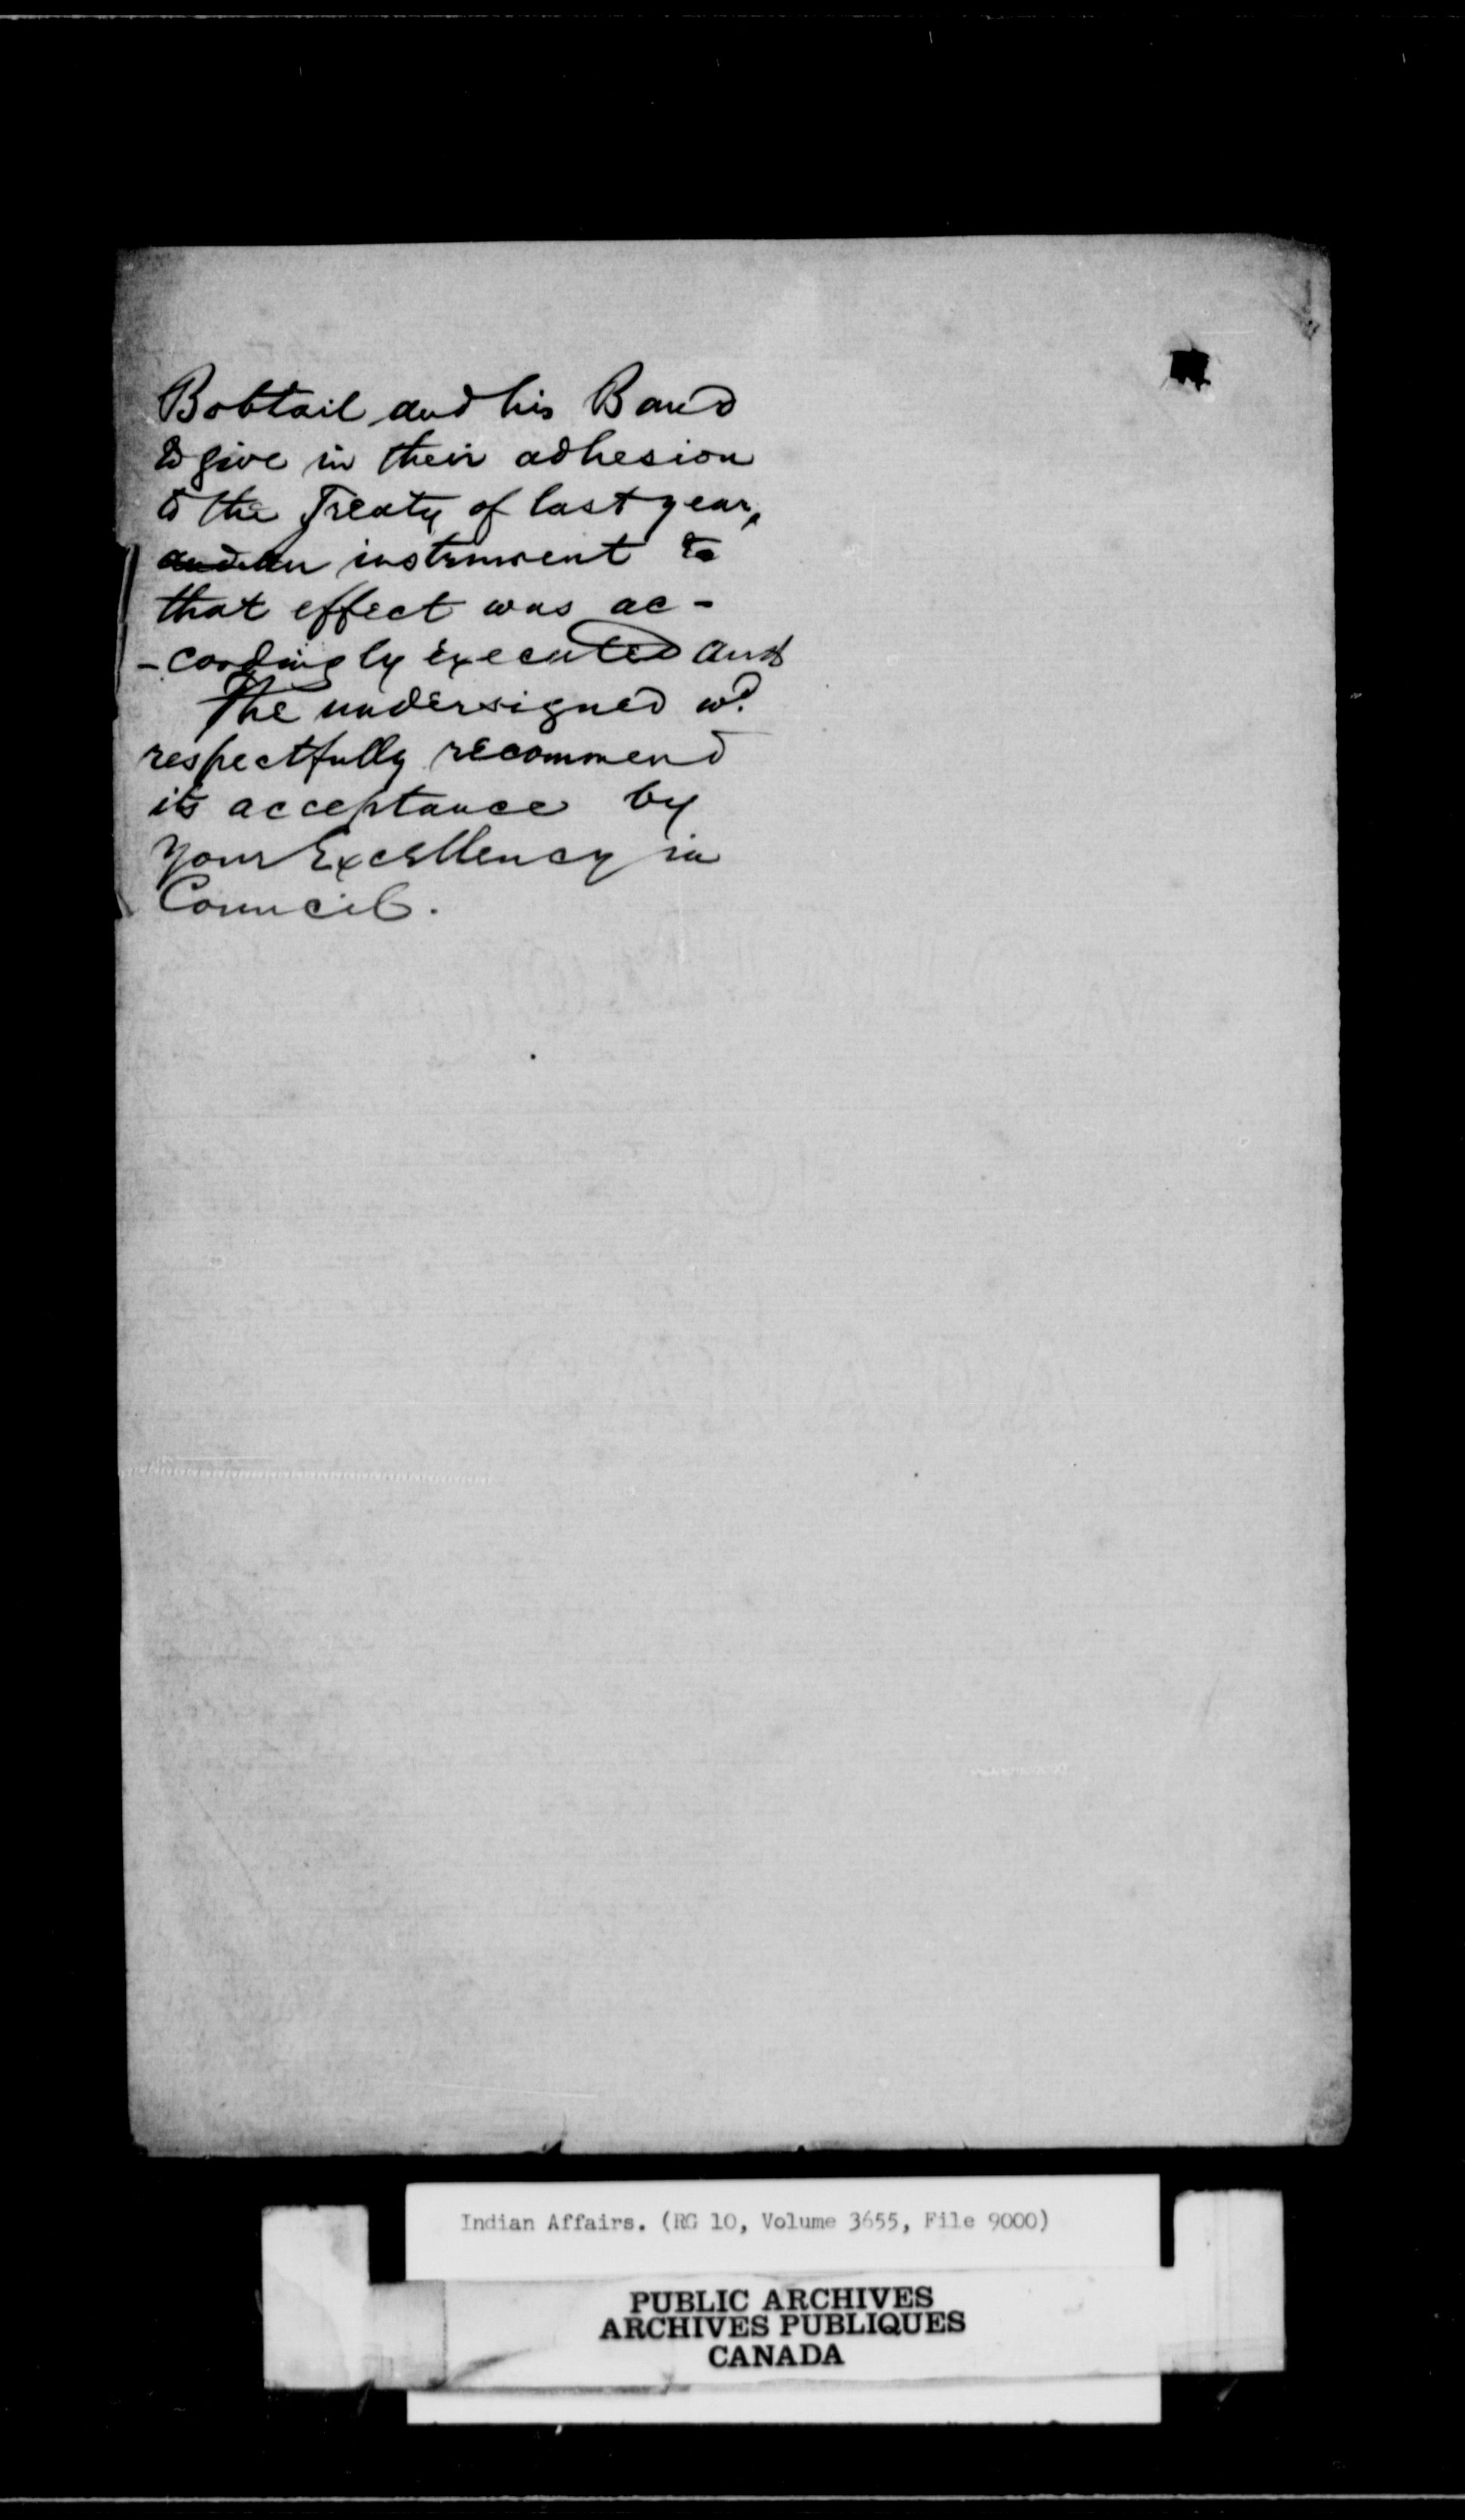 Bobtail and his Band
to give in their adhesion
to the Treaty of last year,
and an instrument to
that effect was ac-
-cordingly executed and
The undersigned wd.
respectfully recommend
its acceptance by
Your Excellency in
Council.
Indian Affairs. (RG 10, Volume 3655, File 9000)
PUBLIC ARCHIVES
ARCHIVES PUBLIQUES
CANADA